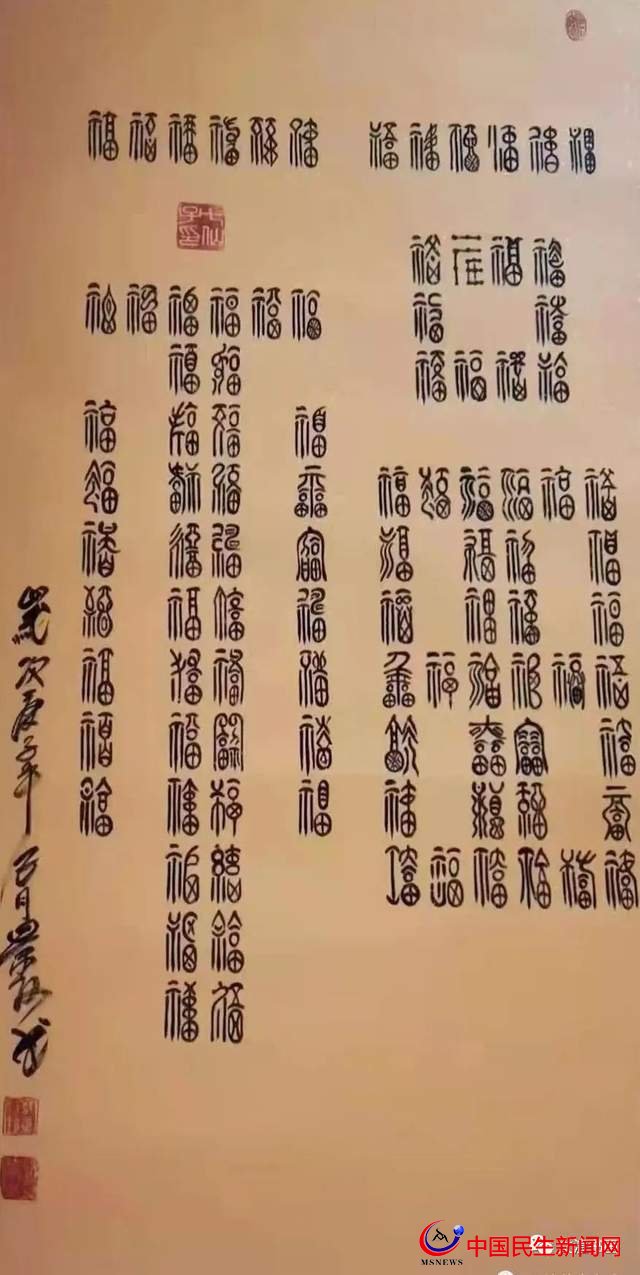 福福福福福福 福福福福福福
福福福福
福福福福福福 福福
福福 福福福福
福福福福
福福福福 福福福福福福
福福福福 福福福福
福福福福 福福福福
福福福福 福福福福福福
福福福福 福福福福
福福福福 福福福福
福福 福福福福福福
福福
福福
歲次庚子年
MSNEWS
中国民生新闻网